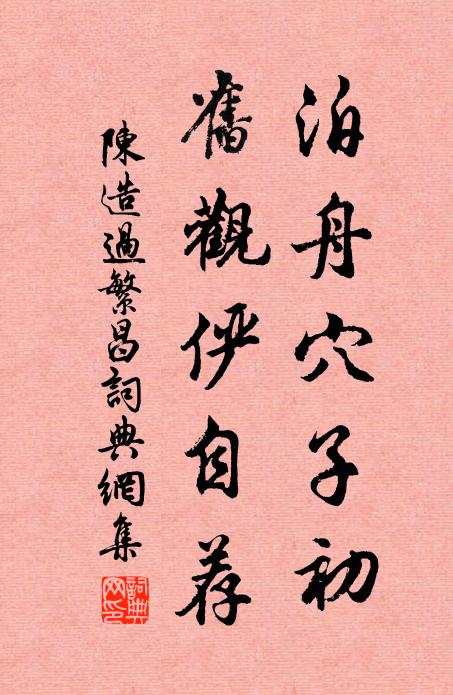 泊舟穴子初
舊觀伻自荐
陳造過繁昌詞典網集
詞典網印